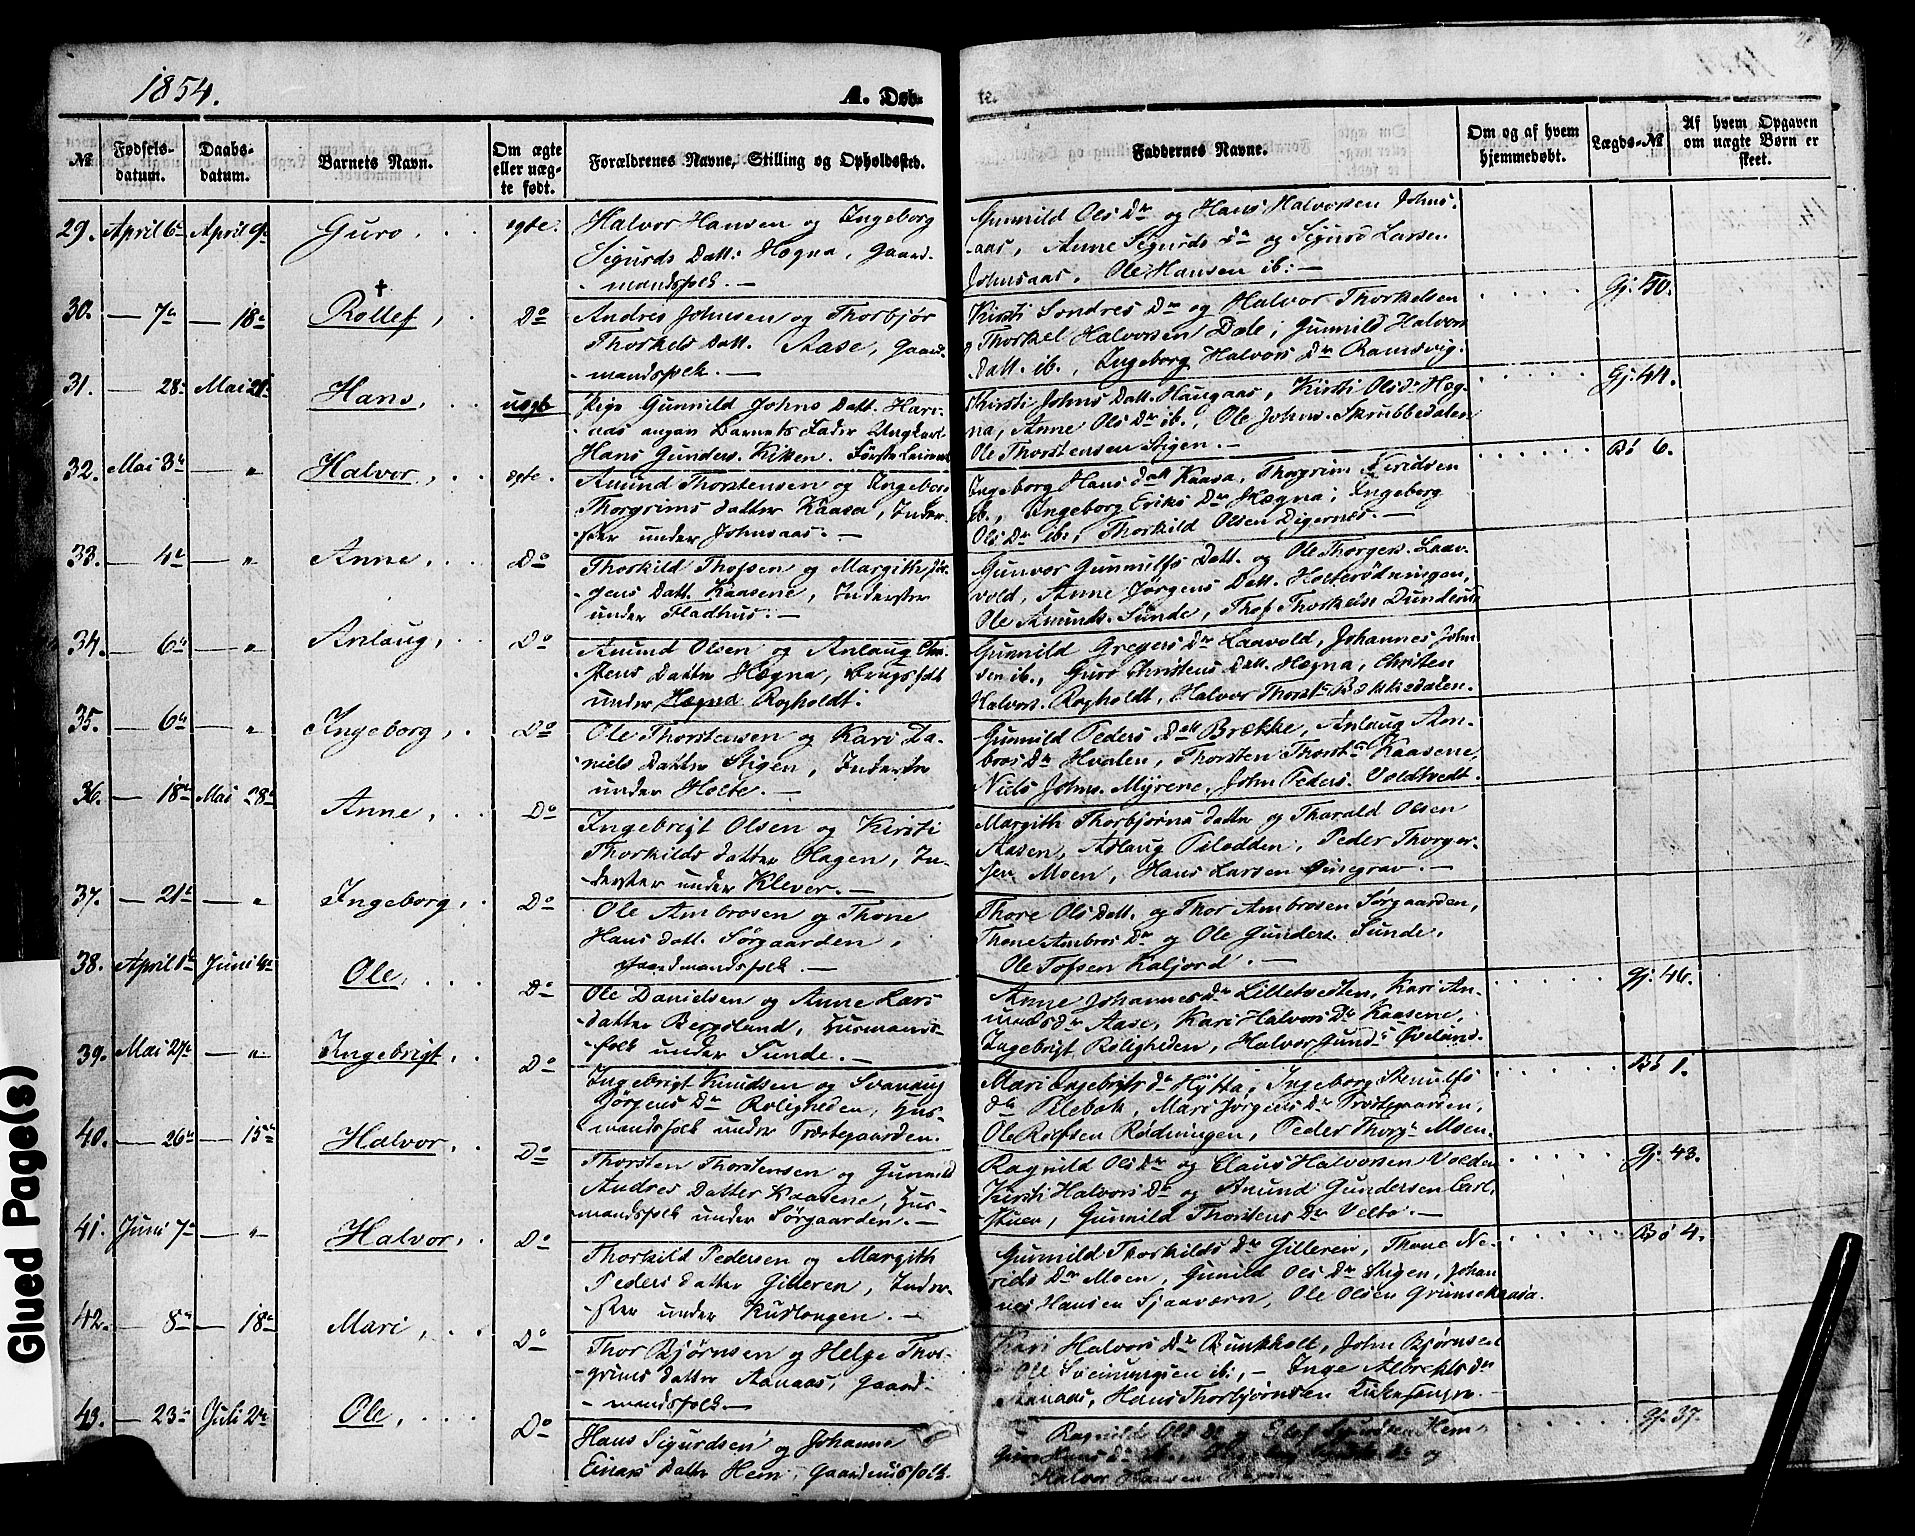 1854.
A. Døb-
№
Fødsels-
datum.
Daabs-
datum.
Barnets Navn.
Om ægte
eller uæg-
te født.
Forældrenes Navne, Stilling og Opholdssted.
Faddernes Navne.
Om og af hvem
hjemmedøbt.
Lægds-№
Af hvem Opgaven
om uægte Børn er
skeet.
29. April 6te April 9de Guro ægte.
Halvor Hansen og Ingeborg
Sigurds Datt. Hægna, Gaard-
mandsfolk. —
Gunnild Ols Dr og Hans Halvorsen Johns-
aas, Anne Sigurds Dr og Sigurd Larsen
Johnsaas, Ole Hansen ib: —
30. — 7de — 18de Rollef, † Do
Andres Johnsen og Thorbjør
Thorkels Datt. Aase, Gaard-
mandsfolk. —
Kirsti Sondres Dr og Halvor Thorkelsen
Thorkel Halvorsen Dale, Gunnild Halvors
Datt. ib., Ingeborg Halvors Dr Ramsvig.
Gj. 50.
31. — 28de Mai 21de Hans, uægte
Pige Gunnild Johns Datt.
angav Barnets Fader Ungkarl
Hans Gunders. Kiken.
Kirsti Johns Datt. Haugaas, Kirsti Ols Dr Hæg-
na, Anne Ols Dr ib., Ole Johns. Skrubbedalen
Ole Thorstensen Stigen. —
Gj. 44.
32. Mai 3de — " Halvor, ægte.
Amund Thorstensen og Ingeborg
Thorgrims Datter Kaasa, Inder-
ster under Johnsaas. —
Ingeborg Hans Datt Kaasa, Thorgrim Neridsen
ib., Ingeborg Eriks Dr Hægna, Ingeborg
Ols Dr ib., Thorkild Olsen Digernes. —
Bö 6.
33. — 4de — " Anne, Do
Thorkild Thofsen og Margith Jør-
gens Datt. Kaasene, Inderster
under Fladhus. —
Gunvor Gunnulfs Datt. og Ole Thorgers. Laav-
vold, Anne Jørgens Datt. Holterödningen,
Ole Amunds. Sunde, Thof Thorkelsen
34. — 6te — " Anlaug, Do
Amund Olsen og Anlaug Chri-
stens Datter Hægna, Brugsfolk
under Hægna Rogholdt.
Gunnild Gregers Dr Laavold, Johannes John-
sen ib., Guro Christens Datt. Hægna, Christen
Halvors. Rogholdt, Halvor Thorsts. Bækkedalen.
35. — 6te — " Ingeborg, Do
Ole Thorstensen og Kari Da-
niels Datter Stigen, Inderster
under Holte. —
Gunnild Peders Datt Brække, Anlaug Am-
bros Dr Hvalen, Thorsten Thorsts. Kaasene,
Niels Johns. Myrene, John Peders. Voldtvedt.
36. — 18de Mai 28de Anne, Do
Ingebrigt Olsen og Kirsti
Thorkilds Datter Hagen, In-
derster under Klever. —
Margith Thorbjørns Datter og Tharald Olsen
Aasen, Aslaug Pilodden, Peder Thorger-
sen Moen, Hans Larsen Snegrav. —
37. — 21de — " Ingeborg, Do
Ole Ambrosen og Thone
Hans Datt. Sørgaarden,
Gaardmandsfolk. —
Thore Ols Datt. og Thor Ambrosen Sørgaarden,
Thone Ambros Dr og Ole Gunders. Sunde,
Ole Tofsen Kaljord. —
38. April 1de Juni 4de Ole, Do
Ole Danielsen og Anne Lars
Datter Bergsland, Husmands-
folk under Sunde. —
Anne Johannes Dr Lilletvedten, Kari Am-
unds Dr Aase, Kari Halvors Dr Kaasene,
Ingebrigt Roligheden, Halvor Øveland.
Gj. 46.
39. Mai 27de — " Ingebrigt, Do
Ingebrigt Knudsen og Svanaug
Jörgens Dr Roligheden, Hus-
mandsfolk under Trætegaarden.
Mari Ingebrigts Dr Hÿtta, Ingeborg Stenulfs
Dr Pilebak, Mari Jørgens Dr Trætegaarden,
Ole Rolfsen Rödningen, Peder Thorgs. Moen.
Bö 1.
40. — 26de — 15de Halvor, Do
Thorsten Thorstensen og Gunnild
Andres Datter Kaasene, Hus-
mandsfolk under Sörgaarden. —
Ragnild Ols Dr og Claus Halvorsen Volden
Kirsti Halvors Dr og Amund Gundersen Carl-
stuen, Gunnild Thorstens Dr Velbo. —
Gj. 43.
41. Juni 7de — " Halvor, Do
Thorkild Pedersen og Margith
Peders Datter Gilleren, Inder-
ster under Kuslongen. —
Gunnild Thorkilds Dr Gilleren, Thone Ne-
rids Dr Moen, Gunild Ols Dr Stigen, Johan
nes Hansen Sjaaværn, Ole Olsen Grimsekaasa.
Bö 4.
42. — 8de — 18de Mari, Do
Thor Bjørnsen og Helge Thor-
grims Datter Aanaas, Gaard-
mandsfolk —
Kari Halvors Dr Bunkholt, John Bjørnsen
Ole Sveinungsen ib., — Inge Albrekts Dr
Aanaas, Hans Thorbjørnsen
43. — 23de Juli 2de Ole, Do
Hans Sigurdsen og Johanne
Einars Datter Hem, Gaardmsfolk.
Ragnild Ols Dr Hem
Halvor Hansen
Gj. 37.
Glued Page(s)